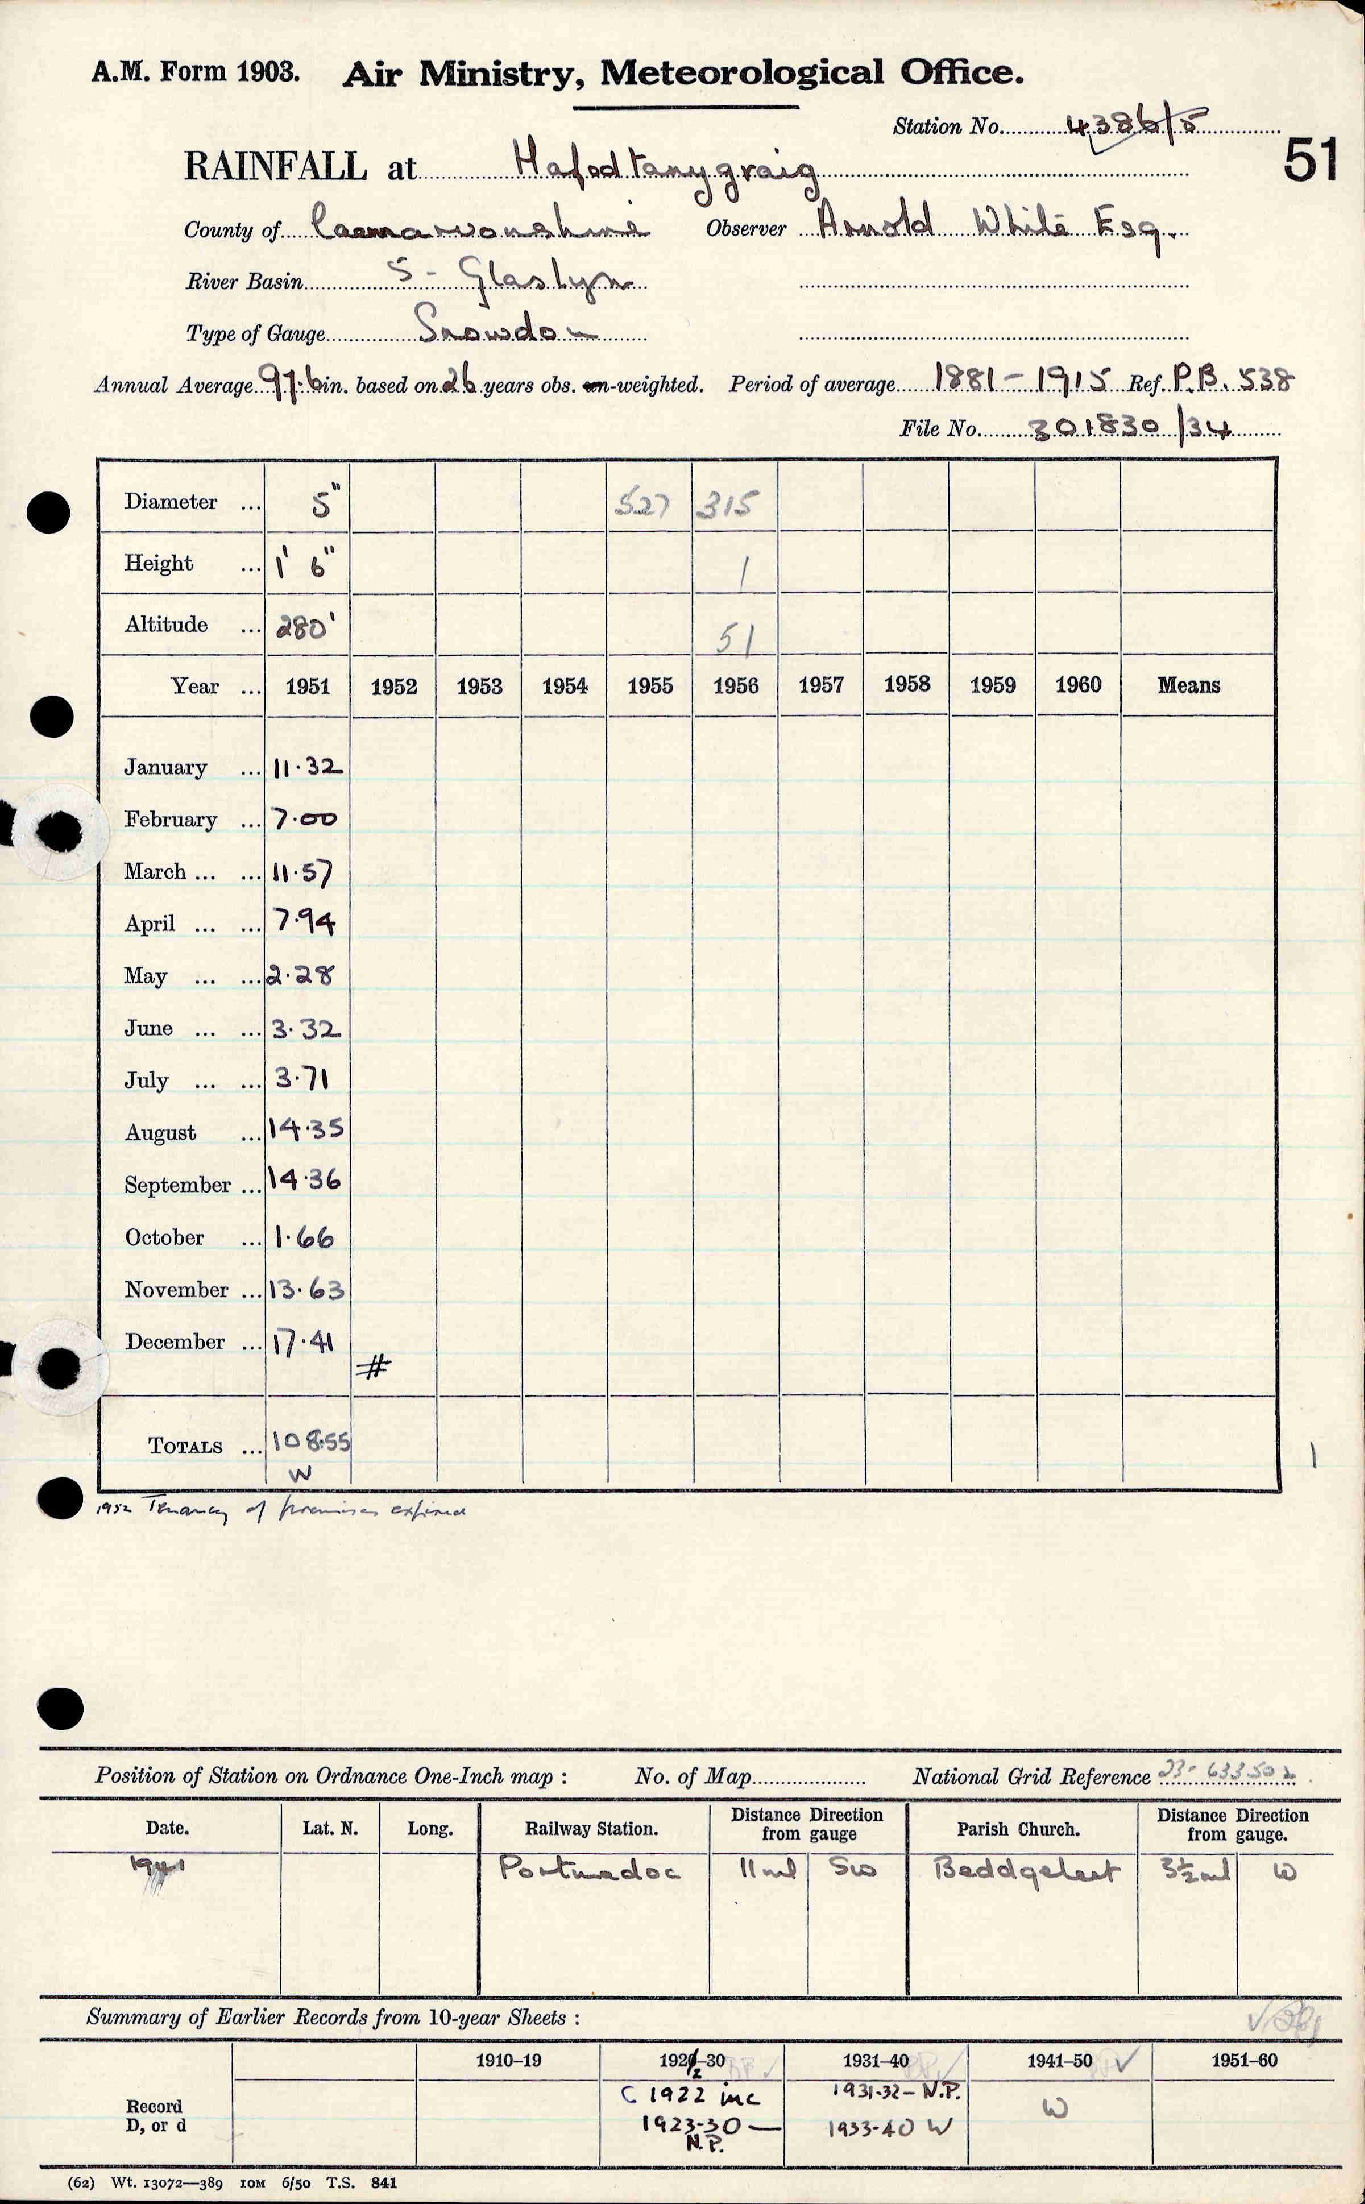 A.M. Form 1903. Air Ministry, Meteorological Office.
Station No. 4386/5
51
RAINFALL at Hafodtanygraig
County of Caernarvonshire Observer Arnold White Esq.
River Basin 5 - Glaslyn
Type of Gauge Snowdon
Annual Average 97.6 in. based on 26 years obs. un-weighted. Period of average 1881-1915 Ref. P.B. 538
File No. 301830/34
Diameter ... 5" 527 315
Height ... 1' 6" 1
Altitude ... 280' 51
Year ... 1951 1952 1953 1954 1955 1956 1957 1958 1959 1960 Means
January ... 11.32
February ... 7.00
March ... ... 11.57
April ... ... 7.94
May ... ... 2.28
June ... ... 3.32
July ... ... 3.71
August ... 14.35
September ... 14.36
October ... 1.66
November ... 13.63
December ... 17.41
#
TOTALS ... 108.55
W
1952 Tenancy of premises expired
Position of Station on Ordnance One-Inch map : No. of Map National Grid Reference 23-633502
Date. Lat. N. Long. Railway Station. Distance Direction from gauge Parish Church. Distance Direction from gauge.
1941 Portmadoc 11 ml SW Beddgelert 3½ ml W
Summary of Earlier Records from 10-year Sheets :
1910-19 192½-30 1931-40 1941-50 1951-60
Record D, or d
C 1922 inc 1931-32 - N.P. W
1923-30 — 1933-40 W
N.P.
(62) Wt. 13072—389 10M 6/50 T.S. 841